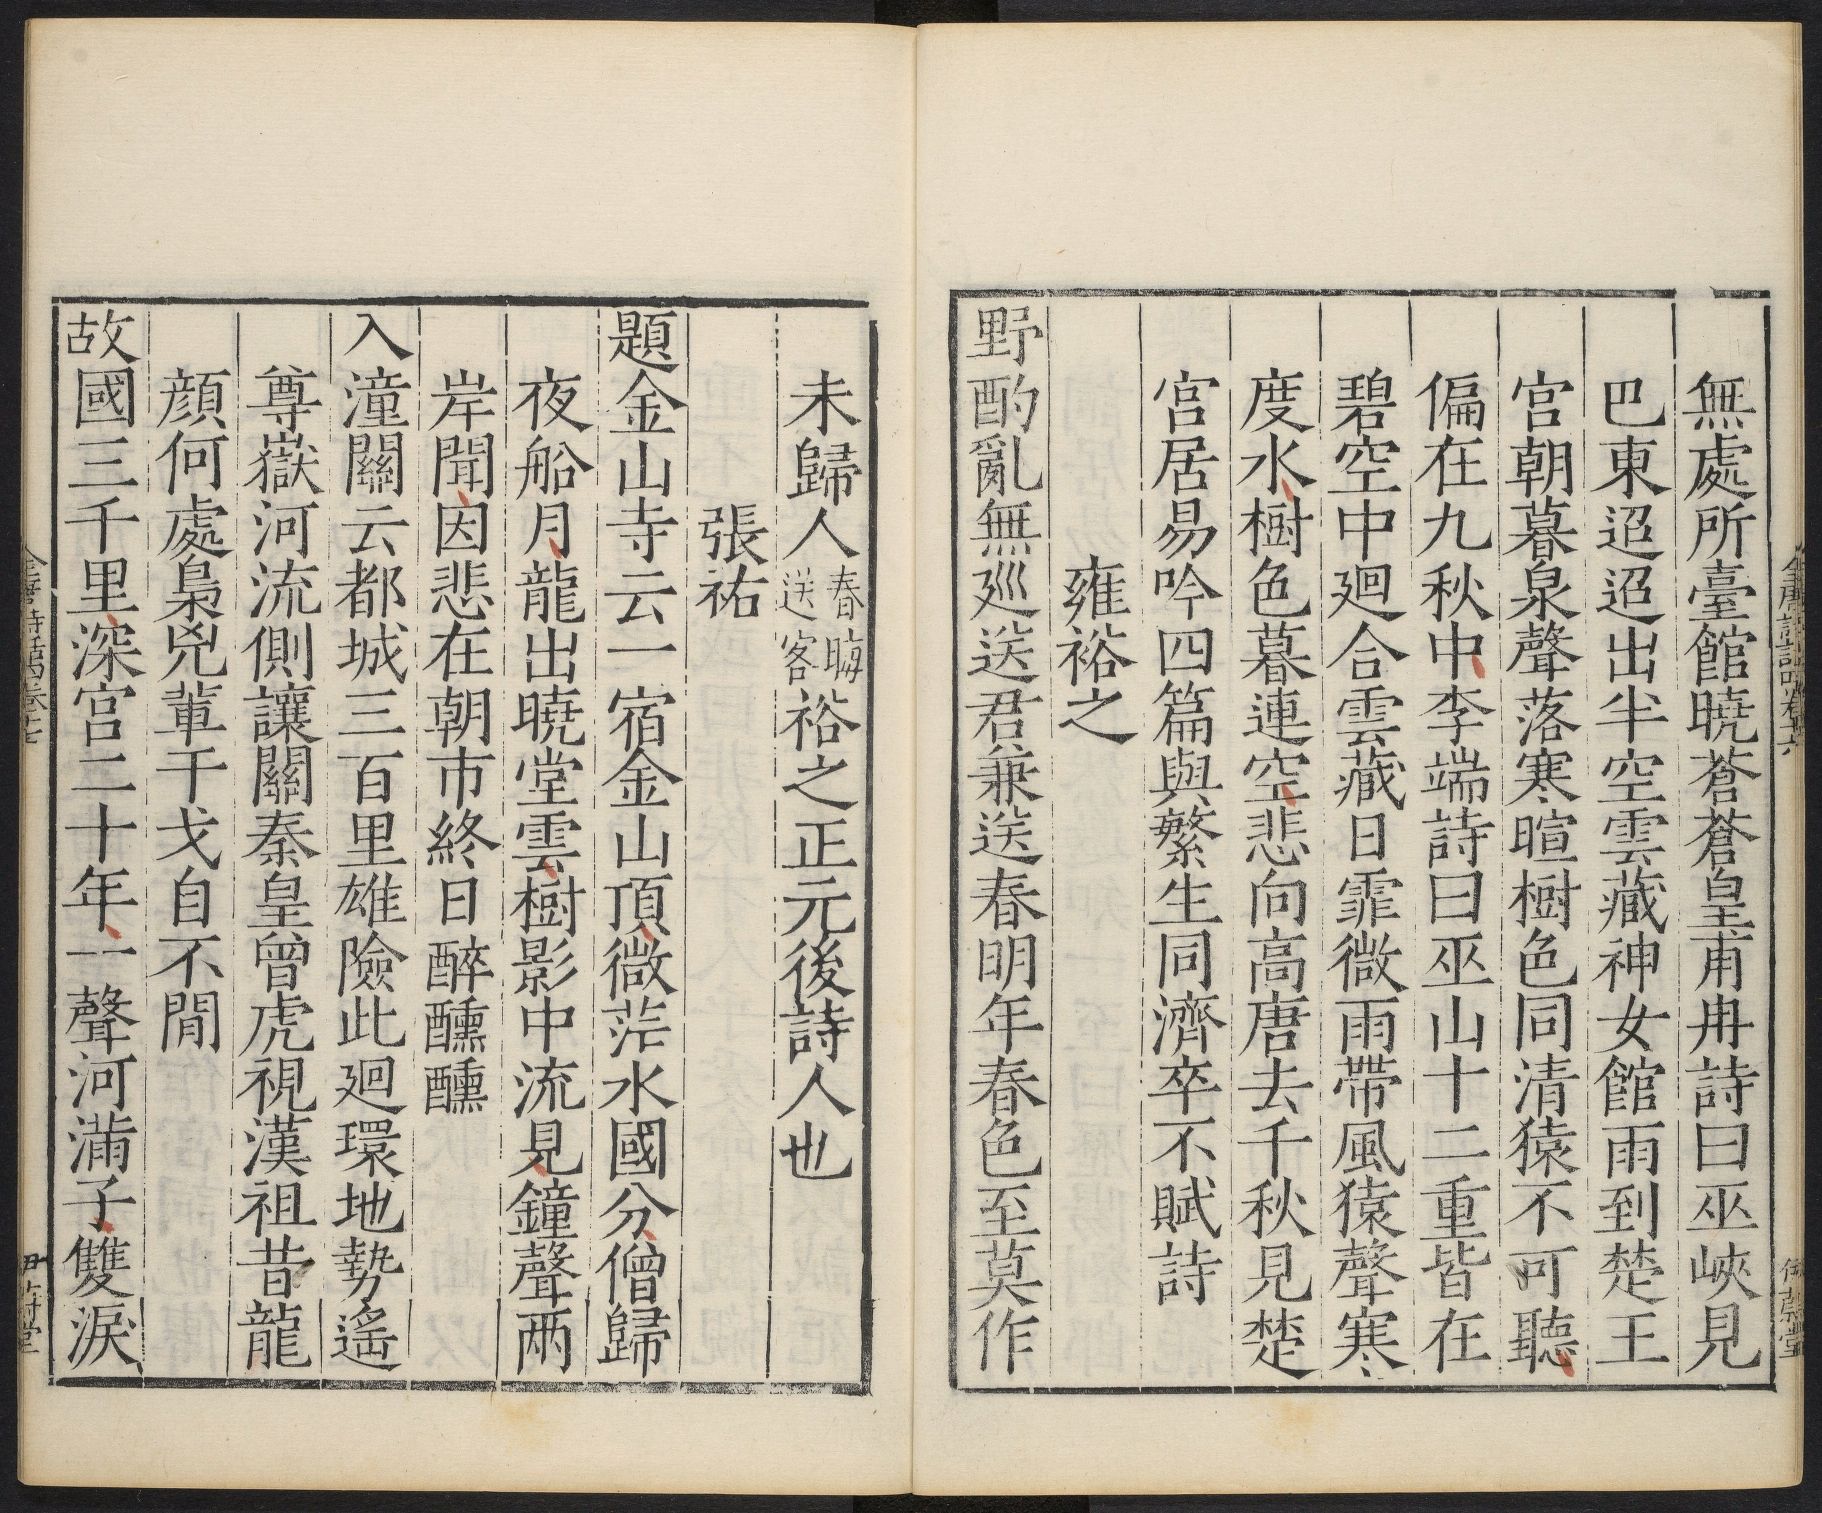 無處所臺館曉蒼蒼皇甫冉詩曰巫峽見
巴東迢迢出半空雲藏神女館雨到楚王
宮朝暮泉聲落寒暄樹色同清猿不可聽
偏在九秋中李端詩曰巫山十二重皆在
碧空中廻合雲藏日霏微雨帶風猿聲寒
度水樹色暮連空悲向高唐去千秋見楚
宮居易吟四篇與繁生同濟卒不賦詩
雍裕之
野酌亂無廵送君兼送春明年春色至莫作
未歸人春晦送客裕之正元後詩人也
張祐
題金山寺云一宿金山頂微茫水國分僧歸
夜船月龍出曉堂雲樹影中流見鐘聲兩
岸聞因悲在朝市終日醉醺醺
入潼關云都城三百里雄險此廻環地勢遙
尊嶽河流側讓關秦皇曾虎視漢祖昔龍
顏何處梟兇輩干戈自不閒
故國三千里深宮二十年一聲河滿子雙淚